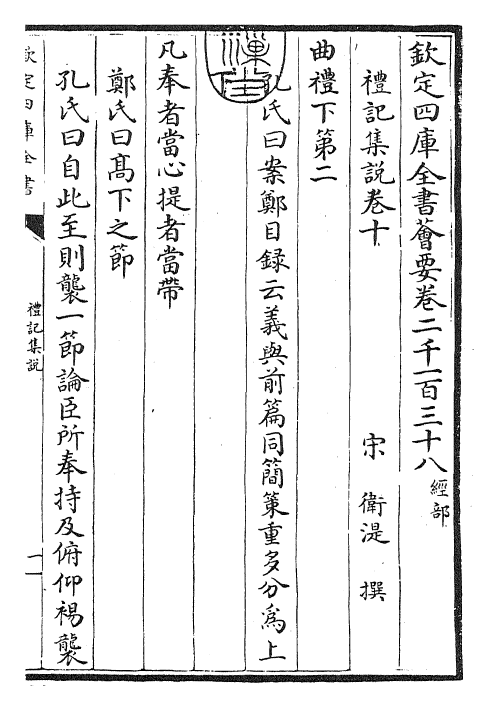 欽定四庫全書薈要卷二千一百三十八經部
禮記集說卷十
宋 衛湜 撰
曲禮下第二
孔氏曰案鄭目錄云義與前篇同簡策重多分爲上
凡奉者當心提者當帶
鄭氏曰高下之節
孔氏曰自此至則襲一節論臣所奉持及俯仰裼襲
欽定四庫全書
禮記集說
一